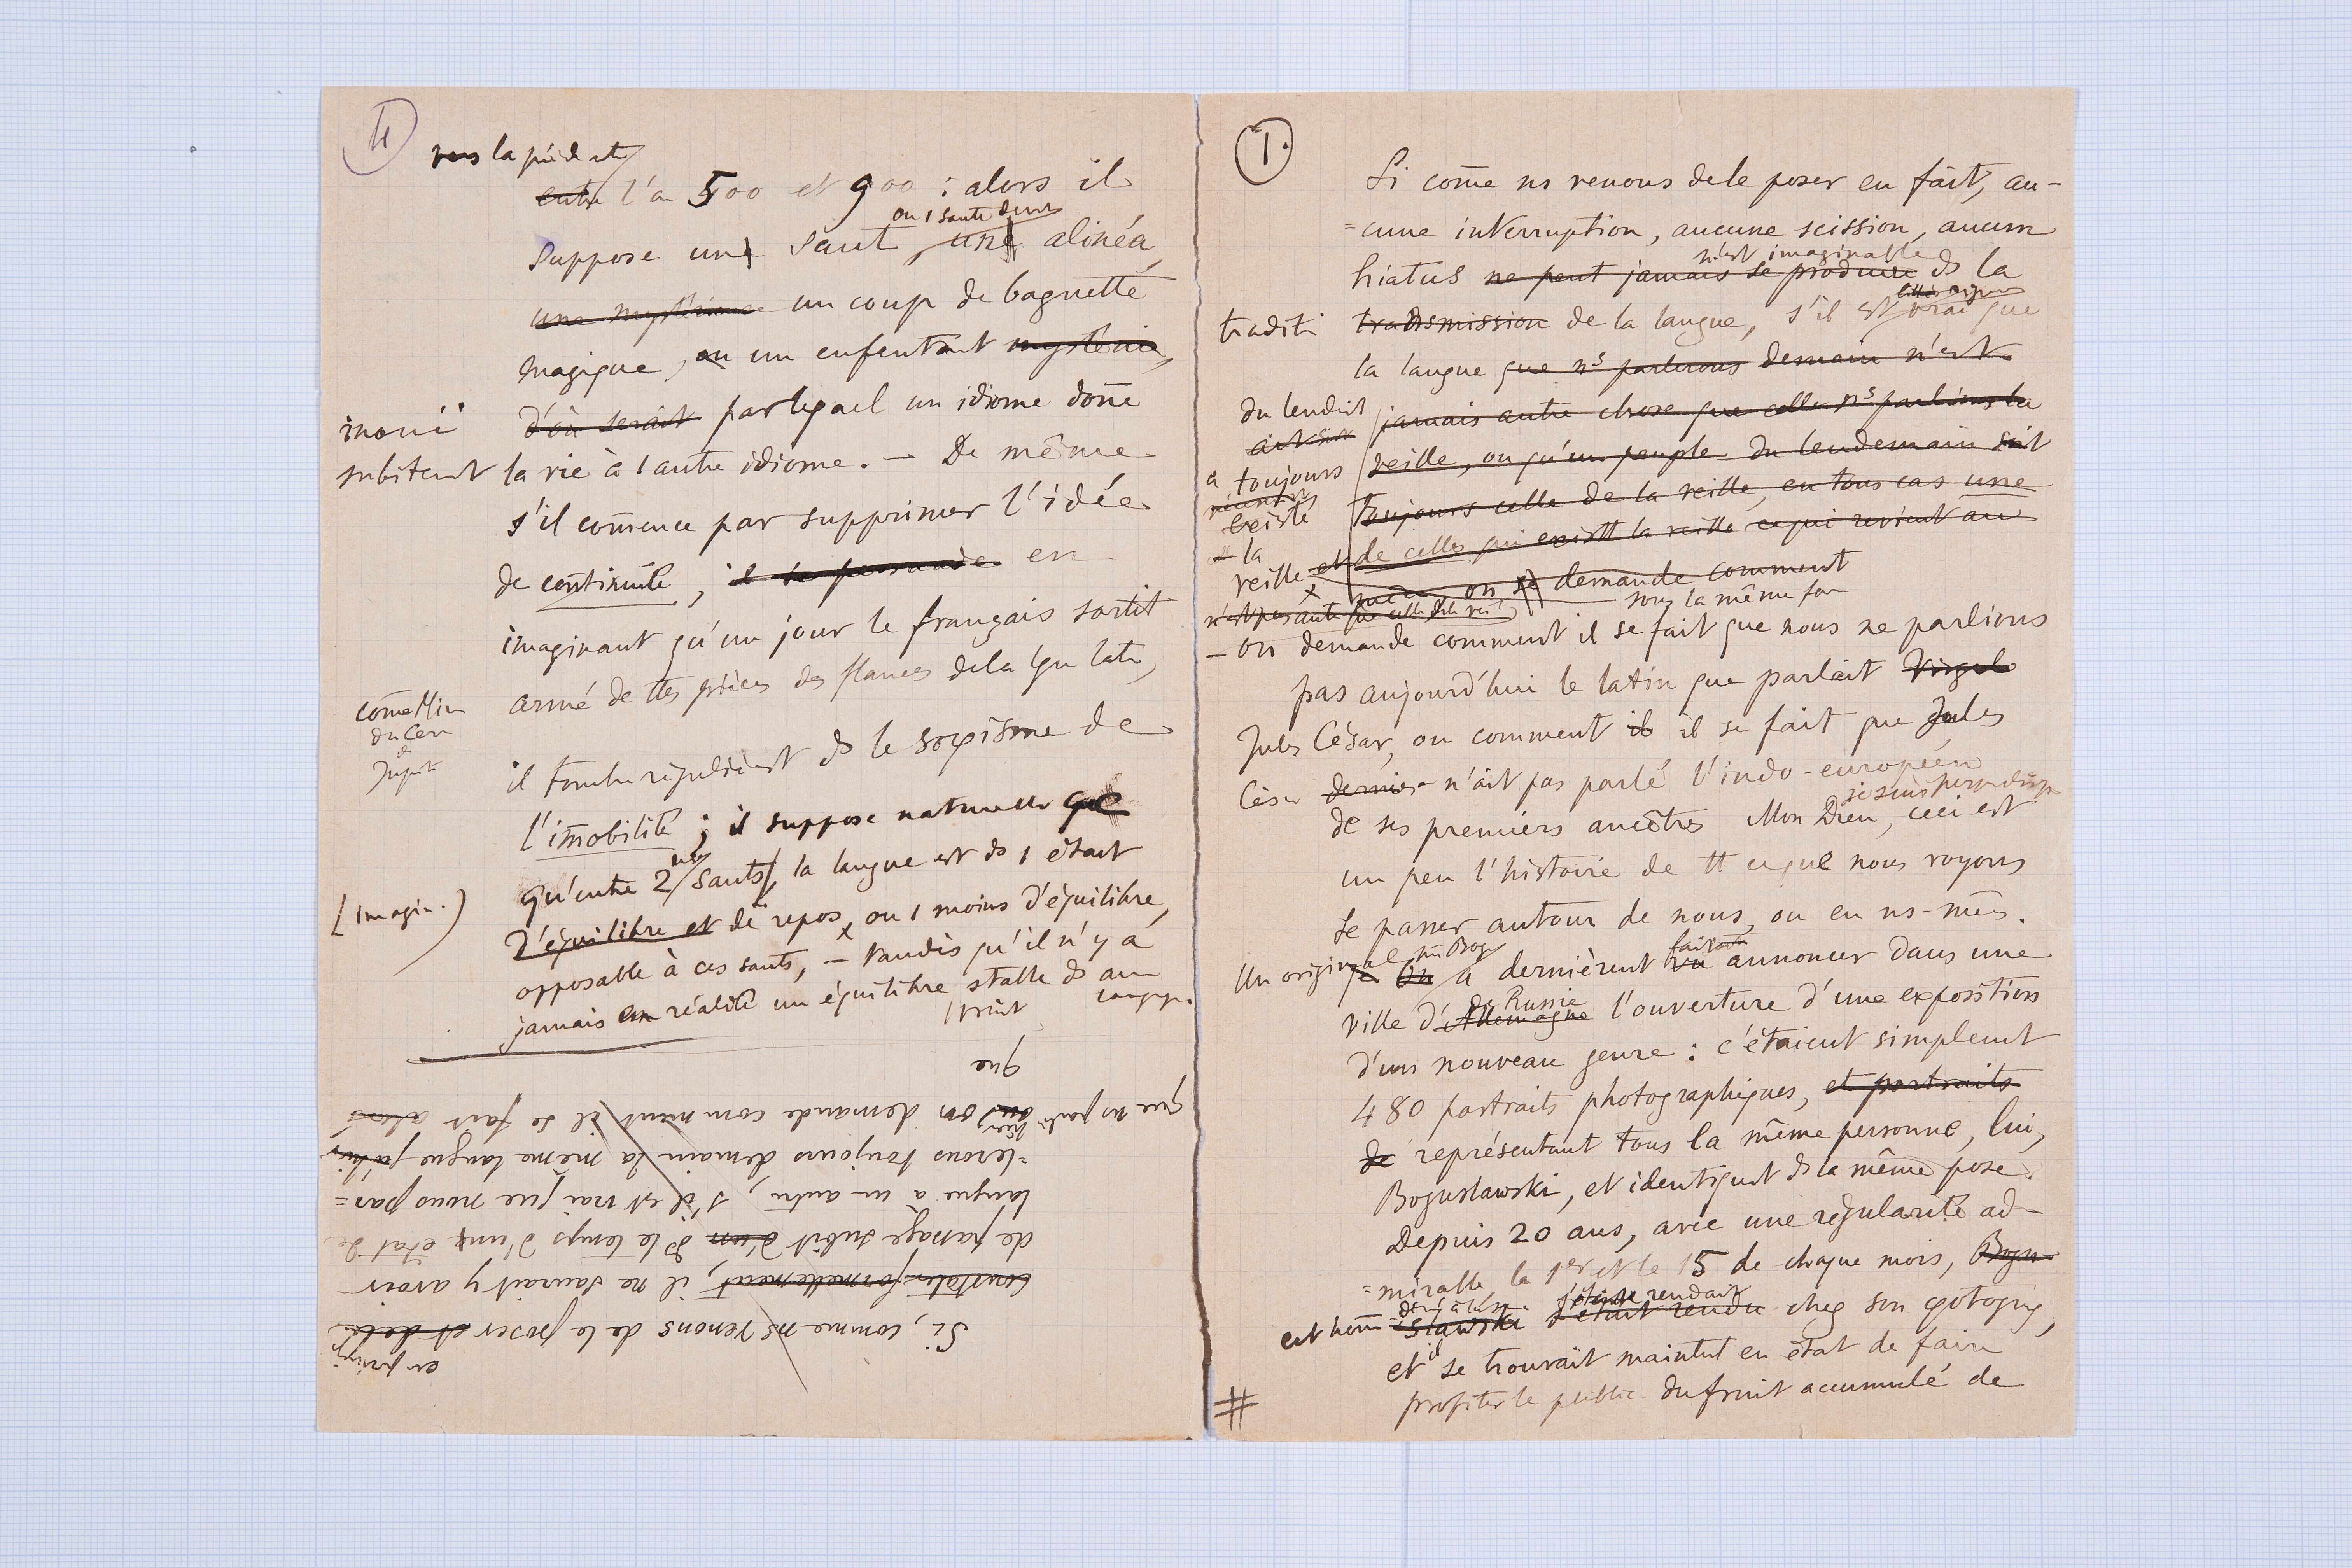 4
vers la période
entre l'an 500 et 900 : alors il
ou 1 saute
suppose une saut, une alinéa,
une un coup de baguette
magique, ou un enfantemt
inouï d'où serait par lequel un idiome donne
subitemt la vie à 1 autre idiome. – De même
s'il commence par supprimer l'idée
de continuité, il se persuade en
imaginant qu'un jour le français sortit
armé de ttes pièces des flancs de la lgu latin,
come Min
du Cerv
de
Jupit
il tombe régulièremt ds le sophisme de
l'imobilité ; il suppose naturellt que
qu'entre 2 sauts, la langue est ds 1 état
(imagin.)
d'équilibre et de repos, ou 1 moins d'équilibre,
opposable à ces sauts, – tandis qu'il n'y a
jamais en réalité un équilibre stable ds aun
langage.
en princip
Si, comme ns venons de le poser et de le
constater formellement, il ne saurait y avoir
de passage subit d'un ds le temps d'un état de
langue à un autre, s'il est vrai que nous par=
=lerons toujours demain la même langue qu'hier
hier
que ns parl on demande comment il se fait alors
que
1.
Si come ns venons de le poser en fait, au-
=cune interruption, aucune scission, aucun
n'est imaginable
hiatus ne peut jamais se produire ds la
traditi transmission de la langue, s'il est vrai que
la langue que ns parlerons demain n'est
du lendemt jamais autre chose que celle ns parlions la
veille, ou qu'un peuple du lendemain soit
a toujours toujours celle de la veille, en tous cas une
existé
– la de celles qui existt la veille ce qui revient au
veille
même on se demande comment
n'est pas autre que celle de la veil
sous la même for
– on demande comment il se fait que nous ne parlions
pas aujourd'hui le latin que parlait Virgile
Jules César, ou comment il il se fait que Jules
César dernier n'ait pas parlé l'indo-européen
de ses premiers ancêtres Mon Dieu, ceci est
un peu l'histoire de tt ce que nous voyons
se passer autour de nous, ou en ns-mês.
nme Bog
Un original On a dernièremt vu annoncer dans une
de Russie
ville d'Allemagne l'ouverture d'une exposition
d'un nouveau genre : c'étaient simplemt
480 portraits photographiques, et portraits
de représentant tous la même personne, lui,
Boguslawski, et identiqmt ds la même pose.
Depuis 20 ans, avec une régularité ad-
=mirable le 1er et le 15 de chaque mois, Bogu-
se rendait
cet hom =slawski s'était rendu chez son photogrg,
et il se trouvait maintnt en état de faire
profiter le public du fruit accumulé de
#